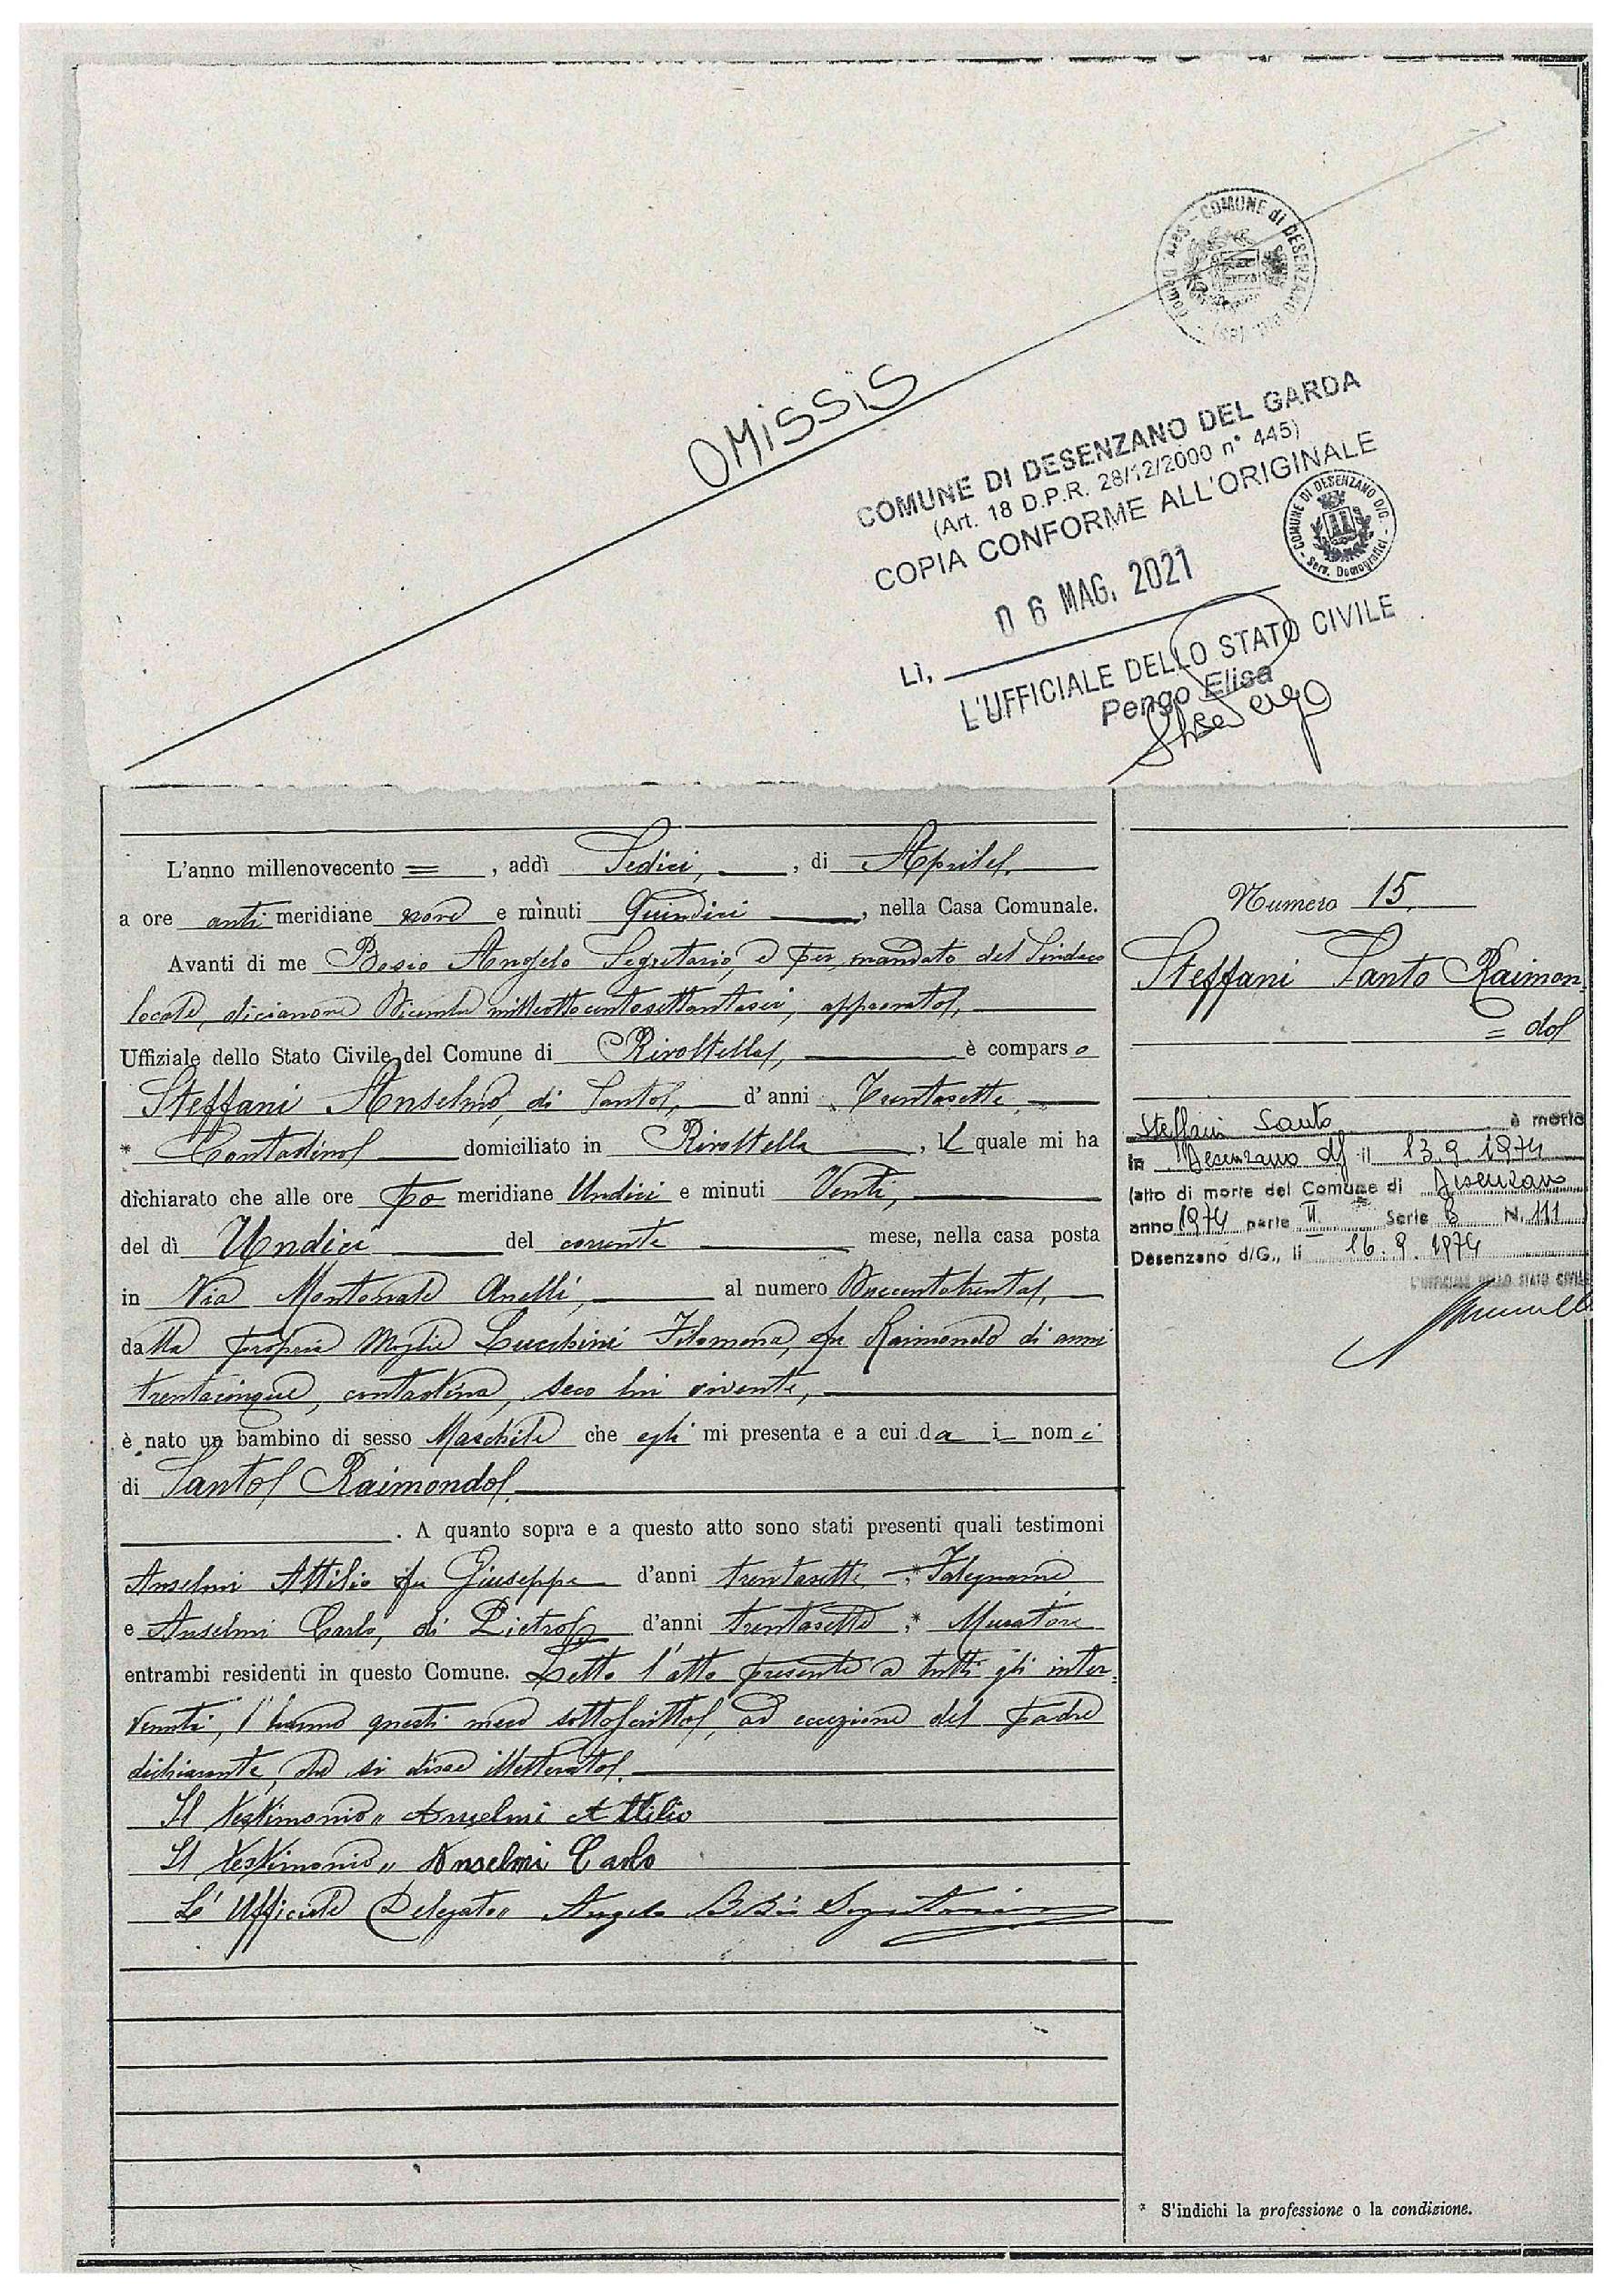 COMUNE di DESENZANO
OMISSIS
COMUNE DI DESENZANO DEL GARDA
(Art. 18 D.P.R. 28/12/2000 n° 445)
COPIA CONFORME ALL'ORIGINALE
COMUNE DI DESENZANO D/G.
Serv. Demografici
Lì, 06 MAG. 2021
L'UFFICIALE DELLO STATO CIVILE
Pengo Elisa
L'anno millenovecento = , addì Sedici, , di Aprile
a ore anti meridiane nove e minuti Quindici , nella Casa Comunale.
Avanti di me Angelo Segretario, e per mandato del Sindaco
locale, diciannove Dicembre milleottocentosettantasei, approvato,
Uffiziale dello Stato Civile del Comune di Rivoltella, è comparso
Steffani Anselmo, di Santo, d'anni Trentasette,
* Contadino domiciliato in Rivoltella , il quale mi ha
dichiarato che alle ore po meridiane Undici e minuti Venti,
del dì Undici del corrente mese, nella casa posta
in Via Montonale Anelli, al numero Duecentotrenta,
dalla propria Moglie Lucchini Filomena, fu Raimondo di anni
trentacinque, contadina, seco lui vivente,
è nato un bambino di sesso Maschile che egli mi presenta e a cui da i nomi
di Santo Raimondo.
. A quanto sopra e a questo atto sono stati presenti quali testimoni
Anselmi Attilio fu Giuseppe d'anni trentasette, * Falegname
e Anselmi Carlo, di Pietro d'anni trentasette, * Muratore
entrambi residenti in questo Comune. Letto l'atto presente a tutti gli inter
venuti, l'hanno questi meco sottoscritto, ad eccezione del padre
dichiarante, che si disse illetterato.
Il testimonio,, Anselmi Attilio
Il testimonio,, Anselmi Carlo
L'Ufficiale Delegato,, Angelo Segretario
Numero 15.
Steffani Santo Raimon
= do
Steffani Santo è morto
in Desenzano d/ il 13.9.1974
(atto di morte del Comune di Desenzano
anno 1974 parte II. Serie B N. 111
Desenzano d/G., lì 16.9.1974
L'UFFICIALE DELLO STATO CIVILE
* S'indichi la professione o la condizione.